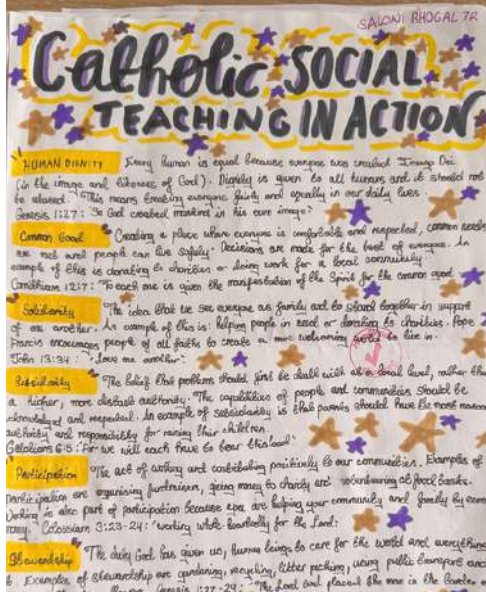 SALONI BHOGAL 7R
Catholic SOCIAL
TEACHING IN ACTION
HUMAN DIGNITY Every human is equal because everyone was created Imago Dei
(in the image and likeness of God). Dignity is given to all humans and it should not
be abused. This means treating everyone fairly and equally in our daily lives.
Genesis 1:27: "So God created mankind in his own image."
Common Good Creating a place where everyone is comfortable and respected, common needs
are met and people can live safely. Decisions are made for the best of everyone. An
example of this is donating to charities or doing work for a local community.
Corinthians 12:7: "To each one is given the manifestation of the Spirit for the common good
Solidarity The idea that we see everyone as family and to stand together in support
of one another. An example of this is: helping people in need or donating to charities. Pope
Francis encourages people of all faiths to create a more welcoming world to live in.
John 13:34: "Love one another."
Subsidiarity The belief that problems should first be dealt with at a local level, rather than
a higher, more distant authority. The capabilities of people and communities should be
acknowledged and respected. An example of subsidiarity is that parents should have the most
authority and responsibility for raising their children.
Galatians 6:5: "For we will each have to bear this load."
Participation The act of working and contributing positively to our communities. Examples of
participation are organising fundraisers, giving money to charity and volunteering at food banks.
Working is also part of participation because you are helping your community and family by
money. Colossians 3:23-24: "working whole-heartedly for the Lord."
Stewardship The duty God has given us, human beings to care for the world and everything
Examples of stewardship are gardening, recycling, litter picking, using public transport and
Genesis 1:27-29: "The Lord God placed the man in the Garden